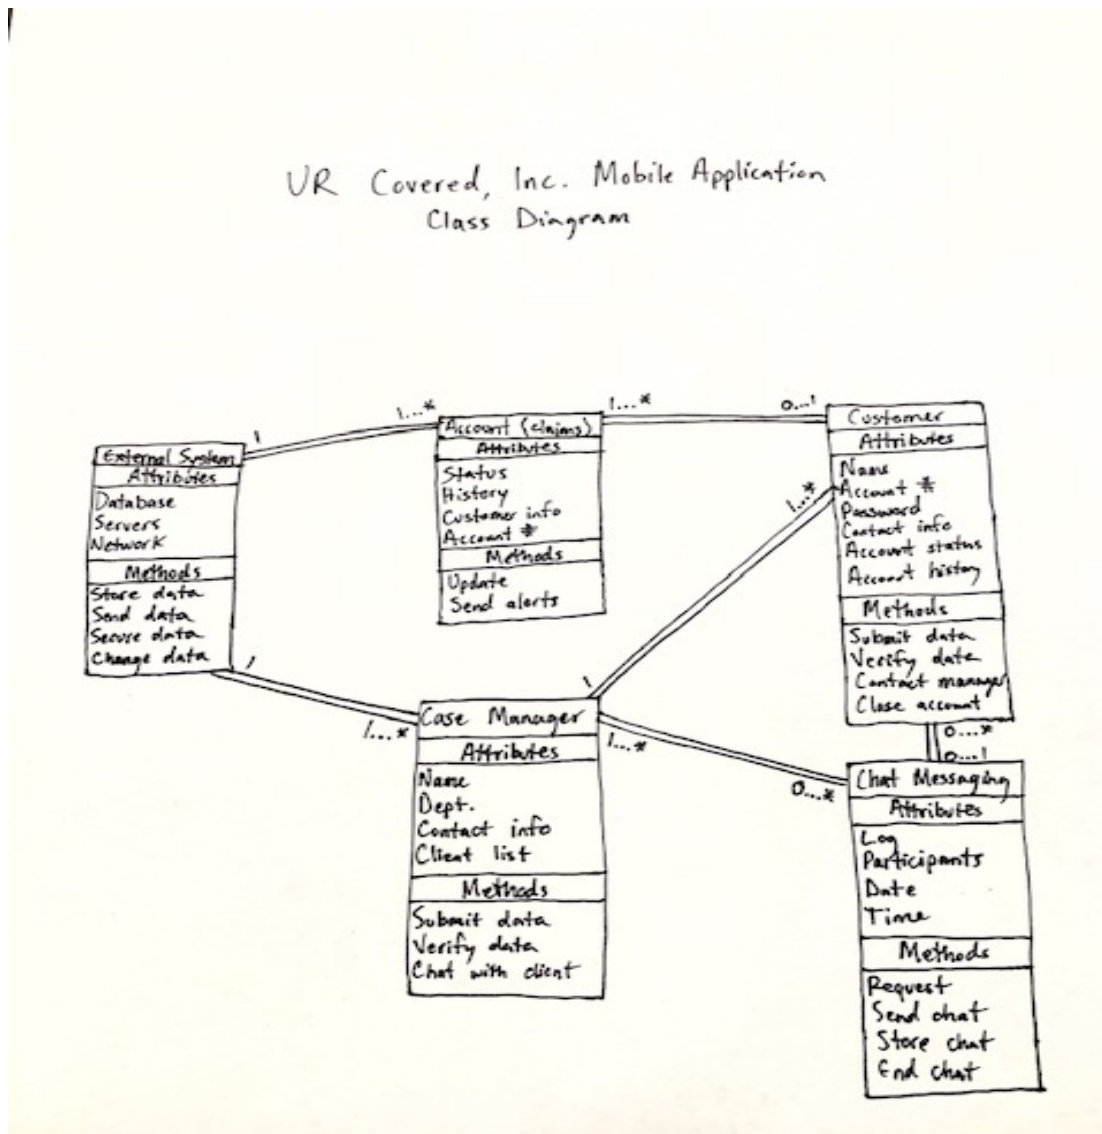 UR Covered, Inc. Mobile Application
Class Diagram
External System
Attributes
Database
Servers
Network
Methods
Store data
Send data
Secure data
Change data
1
1...*
1
1...*
Account (claims)
Attributes
Status
History
Customer info
Account #
Methods
Update
Send alerts
1...*
0...1
Customer
Attributes
Name
Account #
Password
Contact info
Account status
Account history
Methods
Submit data
Verify data
Contact manager
Close account
1...*
1
0...*
0...1
Case Manager
Attributes
Name
Dept.
Contact info
Client list
Methods
Submit data
Verify data
Chat with client
1...*
0...*
Chat Messaging
Attributes
Log
Participants
Date
Time
Methods
Request
Send chat
Store chat
End chat